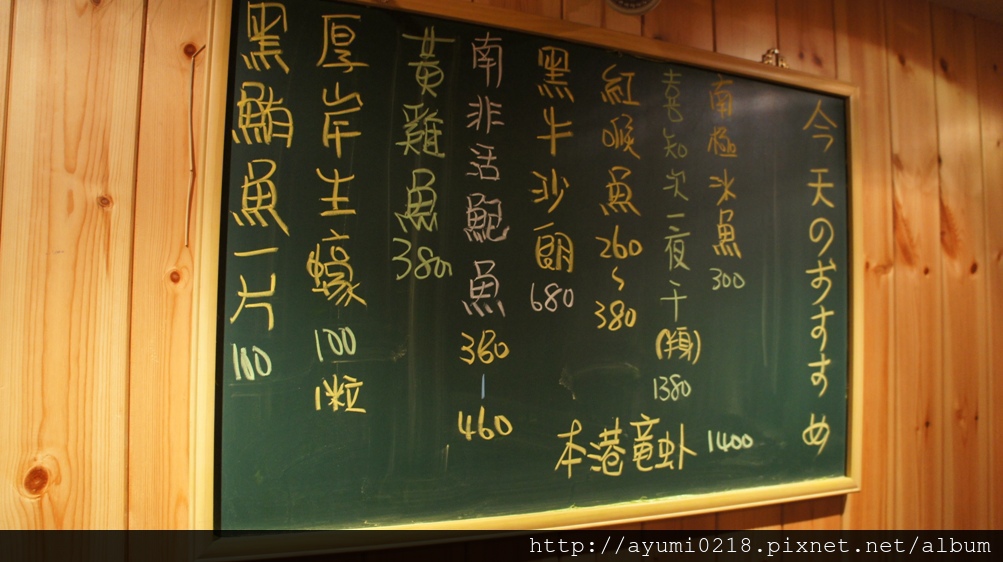 今天のおすすめ
南極冰魚300
喜知次一夜干(半身)1380
紅喉魚260~380
黑牛沙朗680
南非活鮑魚360-460
黃雞魚380
厚岸生蠔100 1粒
黑鮪魚一片100
本港竜虾1400
http://ayumi0218.pixnet.net/album